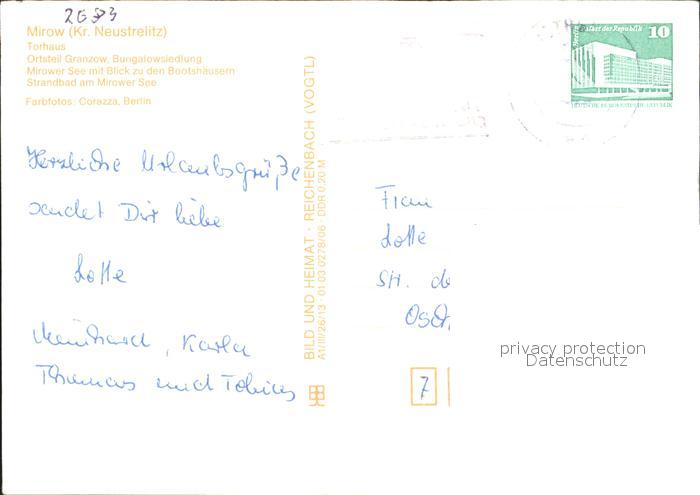 2033
Mirow (Kr. Neustrelitz)
Torhaus
Ortsteil Granzow, Bungalowsiedlung
Mirower See mit Blick zu den Bootshäusern
Strandbad am Mirower See
Farbfotos: Corazza, Berlin
Herzliche Urlaubsgrüße
sendet Dir liebe
Lotte
Meinhard, Karla
Thomas und Tobias
BILD UND HEIMAT · REICHENBACH (VOGTL)
A1/III/26/13 · 01 03 0278/06 DDR 0,20 M
10
Palast der Republik
DEUTSCHE DEMOKRATISCHE REPUBLIK
Frau
Lotte
7
privacy protection
Datenschutz